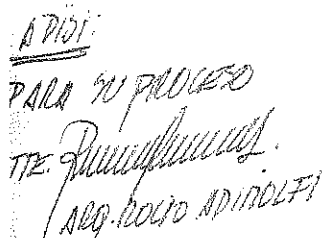 A DISI:
PARA SU PROCESO
TTE.
ARQ. ROCIO ADIMOLFI